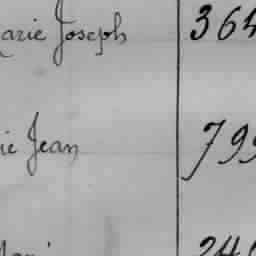 arie Joseph 364
ie Jean 799
246